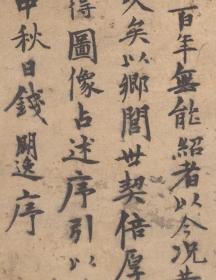 百年無能紹者以今況昔
久矣以鄉閭世契倍厚
得圖像占述序引以
中秋日錢聞逸序